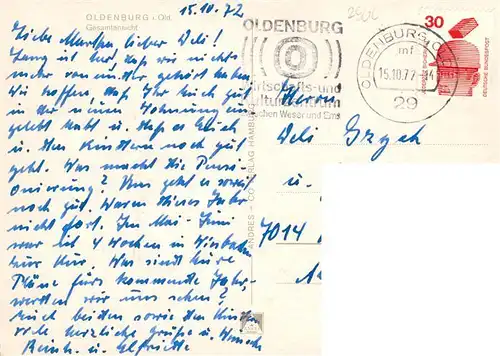 15.10.72
OLDENBURG i. Old.
Gesamtansicht
Liebe Martha, lieber Veli!
Lang ist her, daß wir nichts
mehr von euch gehört haben.
Wir hoffen, daß Ihr Euch gut
in der neuen Wohnung ein-
gelebt habt u. daß es Euch
u. den Kindern noch gut
geht. Was macht die Pensi-
onierung? Uns geht es soweit
noch gut. Waren dieses Jahr
nicht fort. Im Mai - Juni
war ich 4 Wochen in Wiesbaden
zur Kur. Was sind Eure
Pläne fürs kommende Jahr,
werden wir uns sehen?
Euch beiden sowie den Kindern
viele herzliche Grüße u. Wünsche
Reinh. u. Elfriede
OLDENBURG
Wirtschafts- und
Kulturzentrum
zwischen Weser und Ems
OLDENBURG, OLDB
mf
15.10.72-14
29
30
DEUTSCHE BUNDESPOST
Herrn
Veli
u.
7014